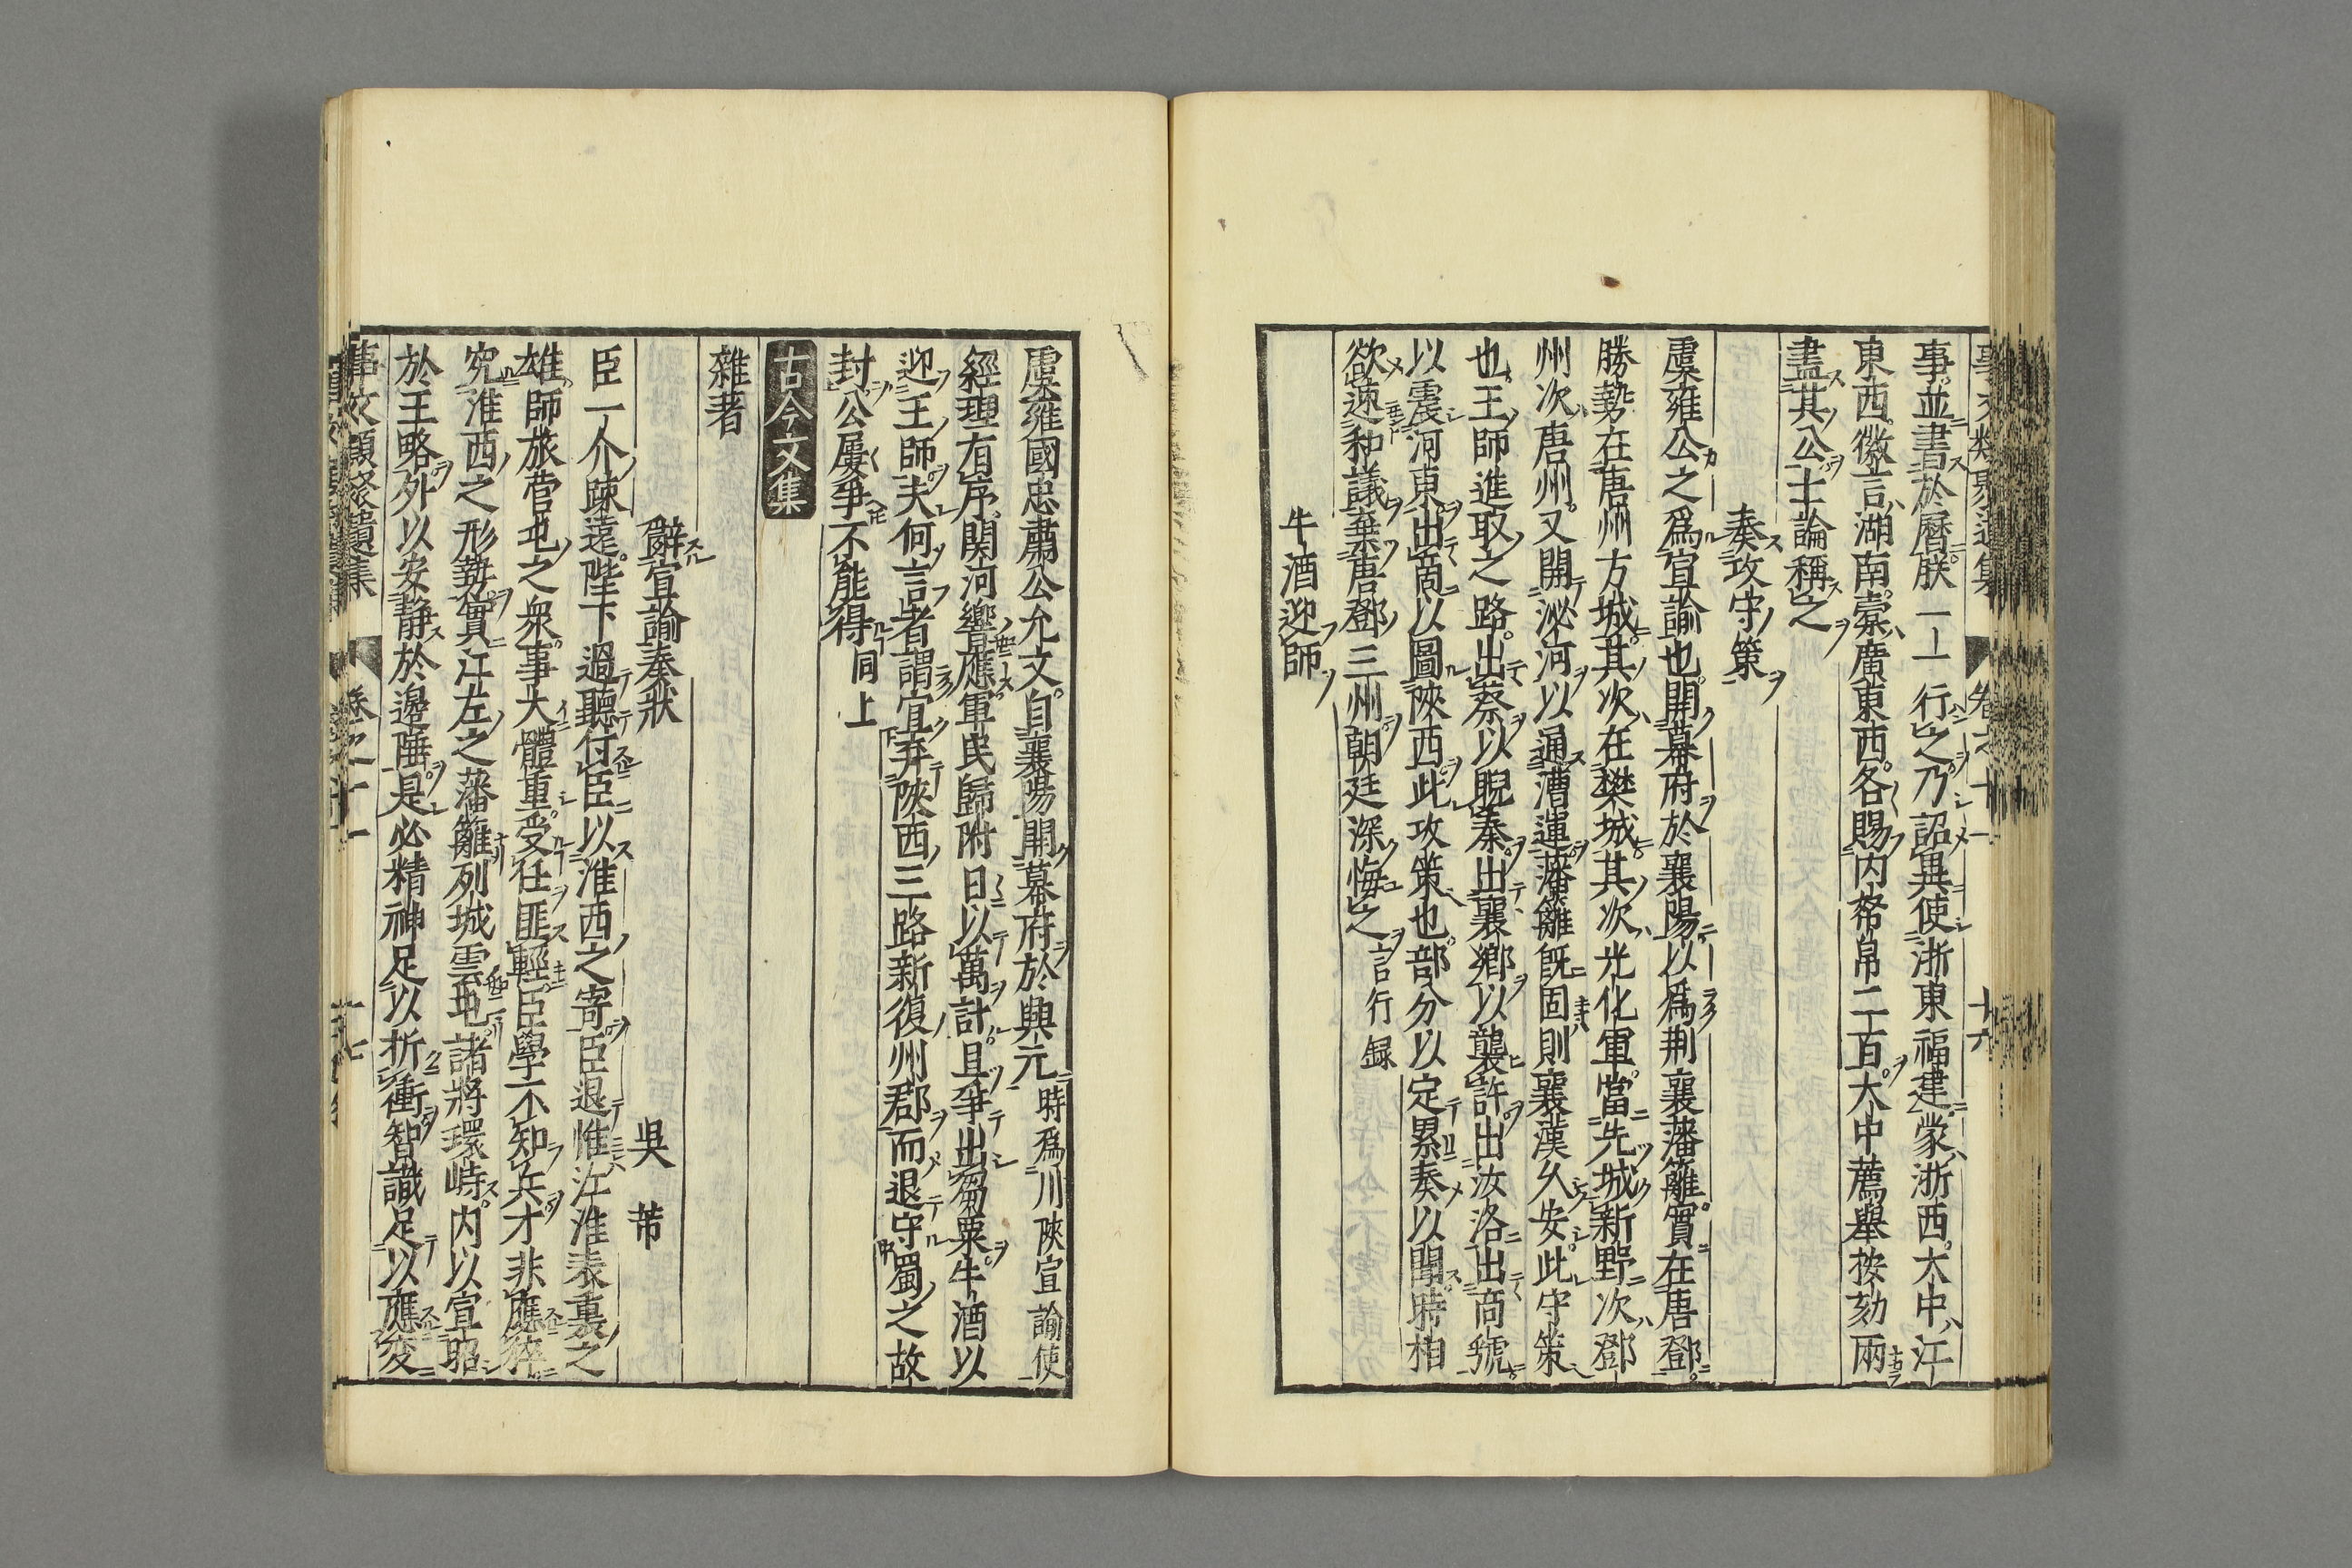 事並書於曆朕一一行之乃詔異使浙東福建蒙浙西大中江
東西徽言湖南霖廣東西各賜内帑帛二百大中薦舉按劾兩
盡其公士論稱之
奏攻守策
虞雍公之爲宣諭也開幕府於襄陽以爲荆襄藩籬實在唐鄧
勝勢在唐州方城其次在樊城其次光化軍當先城新野次鄧
州次唐州又開泌河以通漕運藩籬旣固則襄漢久安此守策
也王師進取之路出蔡以睨秦出襄鄉以襲許出汝洛出商虢
以震河東出商以圖陝西此攻策也部分以定累奏以聞時相
欲速和議棄唐鄧三州朝廷深悔之 言行録
牛酒迎師
虞雍國忠肅公允文自襄陽開幕府於興元 時爲川陝宣諭使
經理有序関河響應軍民歸附日以萬計且爭出芻粟牛酒以
迎王師夫何言者謂宜弃陝西三路新復州郡而退守蜀之故
封公屢爭不能得 同上
古今文集
雜著
辭宣諭奏狀 吳芾
臣一介踈遠陛下過聽付臣以淮西之寄臣退惟江淮表裏之
雄師旅營屯之衆事大體重受任匪輕臣學不知兵才非應猝
究淮西之形勢實江左之藩籬列城雲屯諸將環峙内以宣昭
於王略外以安静於邊陲是必精神足以折衝智識足以應変
事文類聚遺集 卷之十一 十七